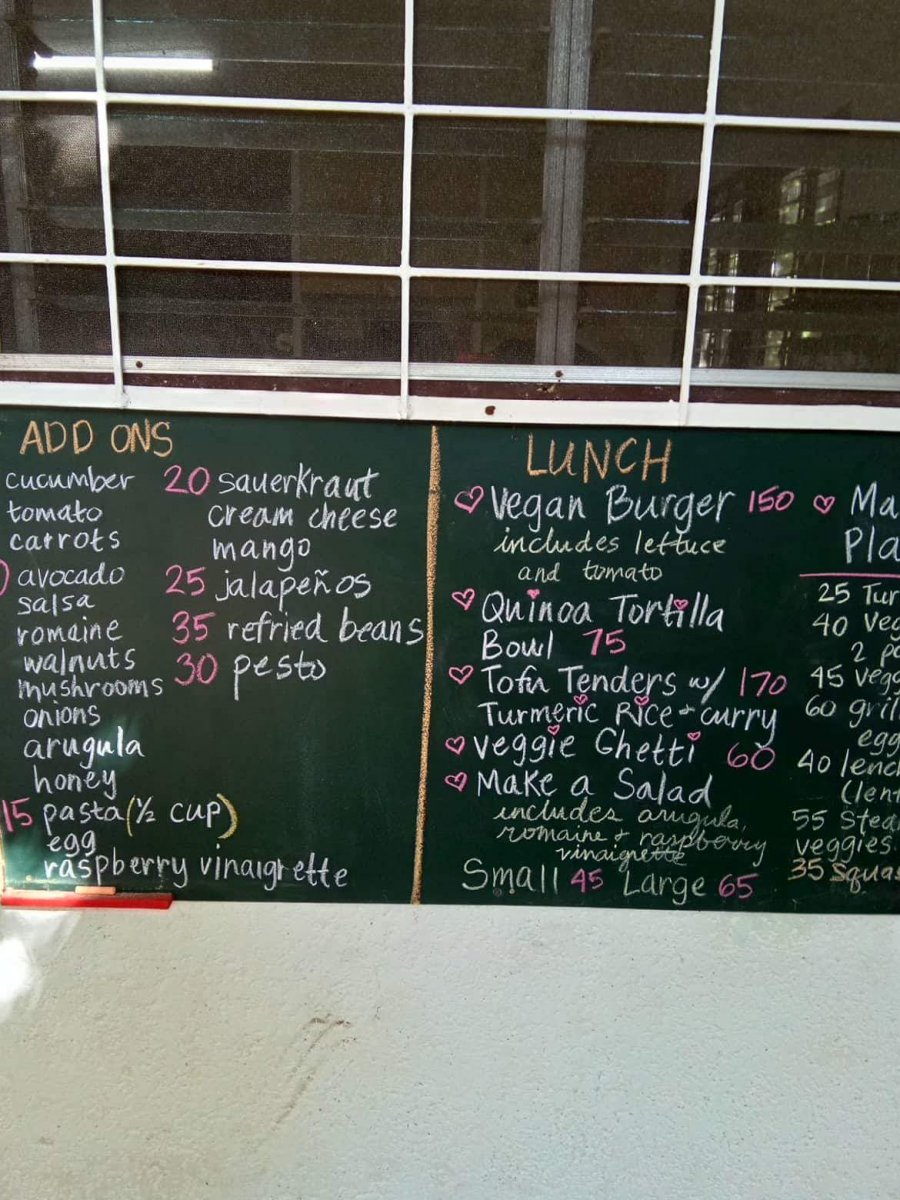 ADD ONS
cucumber
tomato
carrots
avocado
salsa
romaine
walnuts
mushrooms
onions
arugula
honey
15 pasta (½ cup)
egg
raspberry vinaigrette
20 sauerkraut
cream cheese
mango
25 jalapeños
35 refried beans
30 pesto
LUNCH
Vegan Burger 150
includes lettuce
and tomato
Quinoa Tortilla
Bowl 75
Tofu Tenders w/ 170
Turmeric Rice + curry
Veggie Ghetti 60
Make a Salad
includes arugula,
romaine + raspberry
vinaigrette
Small 45 Large 65
Ma
Pla
25 Tur
40 Veg
2 p
45 vegg
60 gril
egg
40 lenc
(lent
55 Stea
veggies
35 Squas